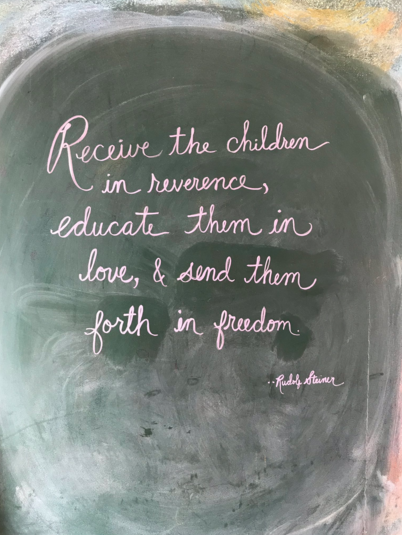 Receive the children
in reverence,
educate them in
love, & send them
forth in freedom.
--Rudolf Steiner